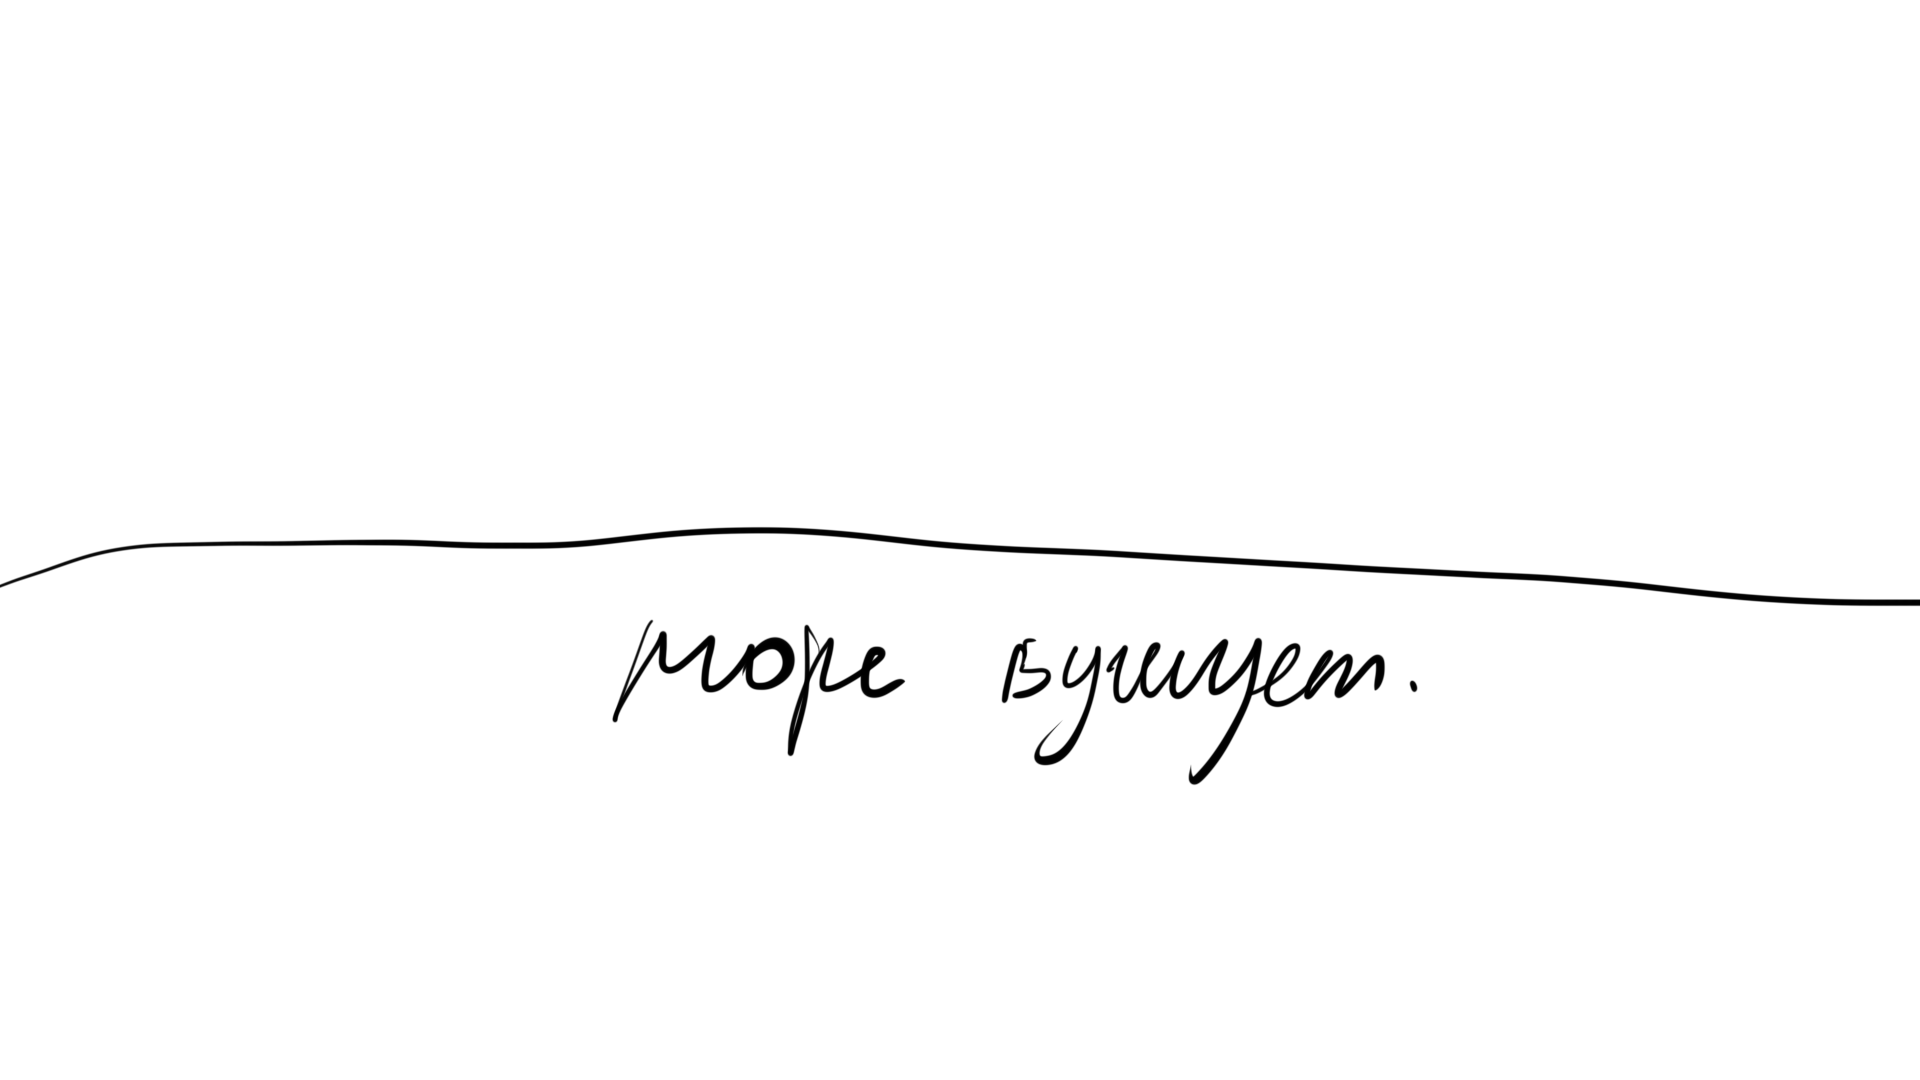 море бушует.